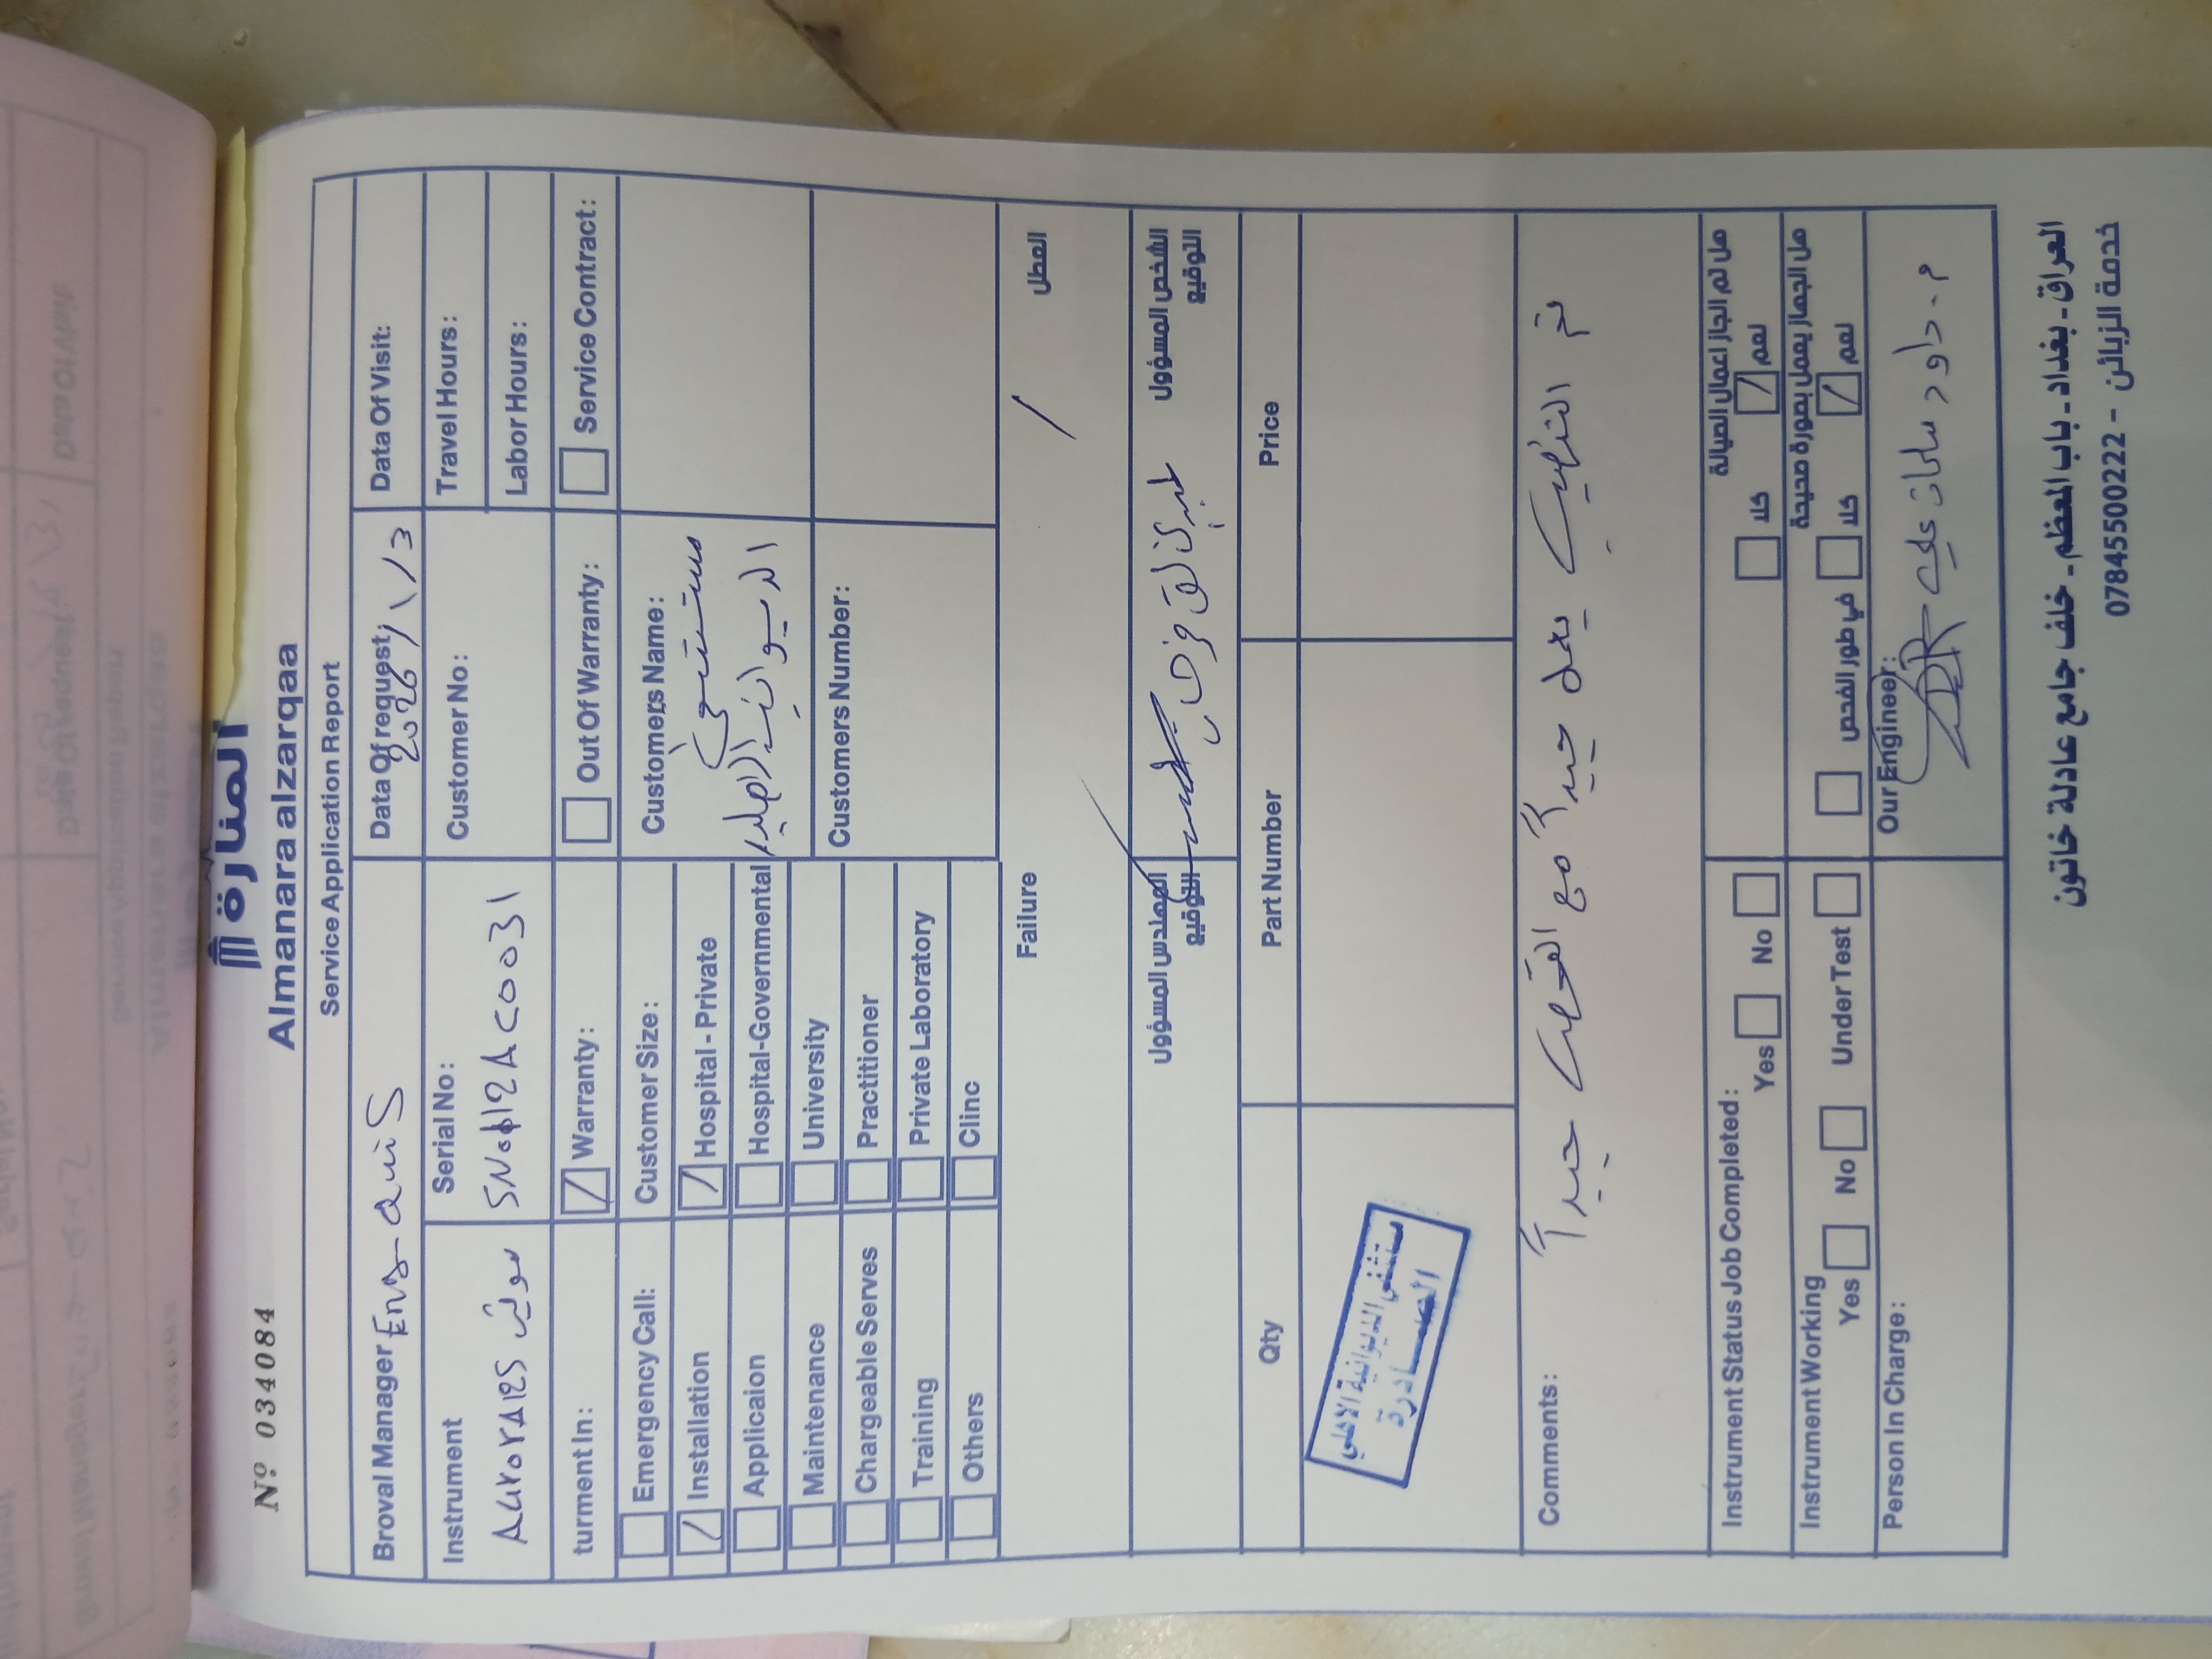 Nº 034084
المنارة
Almanara alzarqaa
Service Application Report
Broval Manager Eng- anis
Data Of request: 2026/1/3
Data Of Visit:
Instrument
Aurora12S سونار
Serial No:
SN0612AC0031
Customer No:
Travel Hours:
Labor Hours:
turment In:
Warranty:
Out Of Warranty:
Service Contract:
Emergency Call:
Installation
Applicaion
Maintenance
Chargeable Serves
Training
Others
Customer Size:
Hospital - Private
Hospital-Governmental
University
Practitioner
Private Laboratory
Clinc
Customers Name:
مستشفى
الديوانية الاهلية
Customers Number:
Failure
العطل
المهندس المسؤول
التوقيع
الشخص المسؤول
التوقيع
Qty
Part Number
Price
مستشفى الديوانية الاهلي
الصادرة
Comments:
تم التنصيب يعمل جيداً مع الفحص جيداً
Instrument Status Job Completed:
Yes No
هل تم انجاز اعمال الصيانة
كلا نعم
Instrument Working
Yes No Under Test
هل الجهاز يعمل بصورة صحيحة
في طور الفحص كلا نعم
Person In Charge:
Our Engineer:
م. داود سلمان علي
العراق - بغداد - باب المعظم - خلف جامع عادلة خاتون
خدمة الزبائن - 07845500222